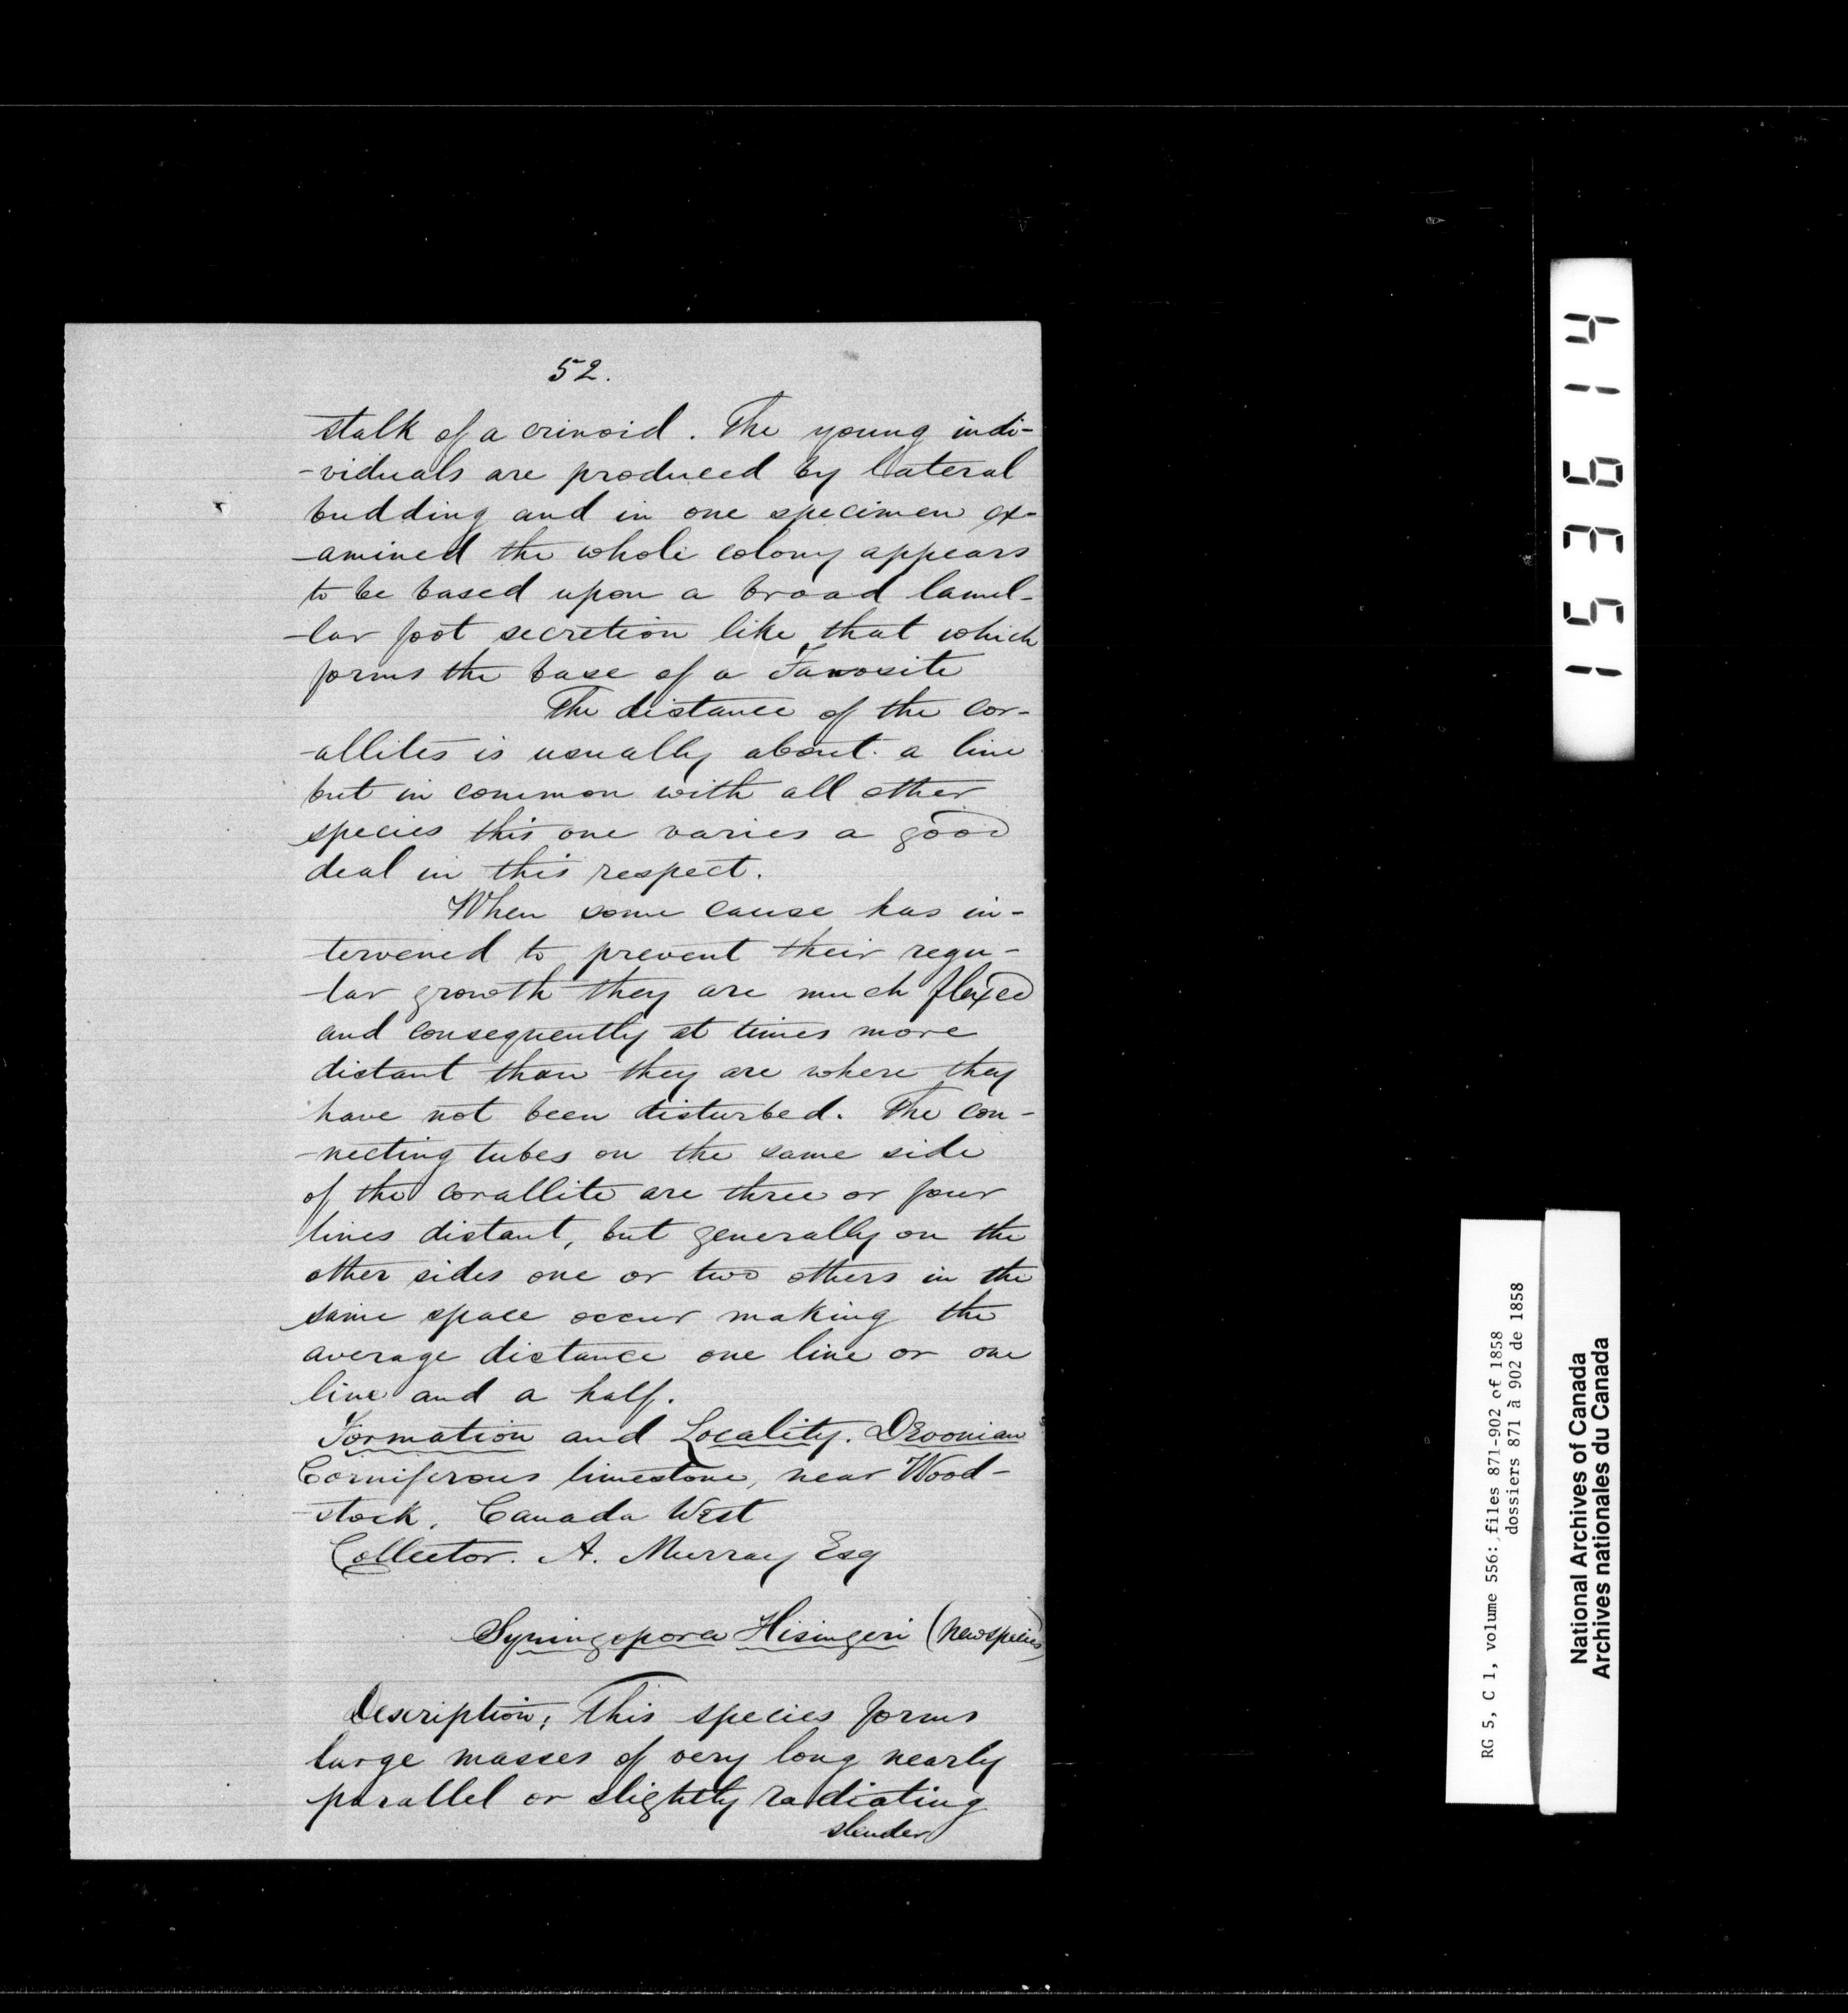 52.
stalk of a crinoid. The young indi-
-viduals are produced by lateral
budding and in one specimen ex-
-amined the whole colony appears
to be based upon a broad lamel-
-lar foot secretion like that which
forms the base of a Favosite
The distance of the cor-
-allites is usually about a line
but in common with all other
species this one varies a good
deal in this respect.
When some cause has in-
tervened to prevent their regu-
-lar growth they are much flexed
and consequently at times more
distant than they are where they
have not been disturbed. The con-
-necting tubes on the same side
of the corallite are three or four
lines distant, but generally on the
other sides one or two others in the
same space occur making the
average distance one line or one
line and a half.
Formation and Locality. Devonian
Corniferous limestone, near Wood-
-stock, Canada West
Collector. A. Murray Esq
Syringopora Hisingeri (new species)
Description; This species forms
large masses of very long nearly
parallel or slightly radiating
slender
153614
RG 5, C 1, volume 556: files 871-902 of 1858
dossiers 871 à 902 de 1858
National Archives of Canada
Archives nationales du Canada